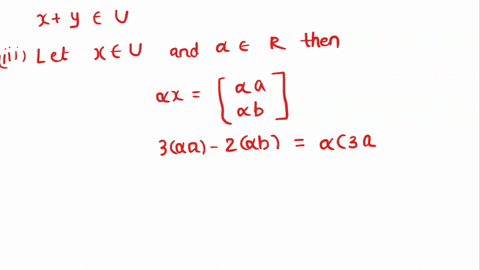 x + y ∈ U
(iii) Let x ∈ U and α ∈ R then
αx = [ αa
αb ]
3(αa) - 2(αb) = α(3a